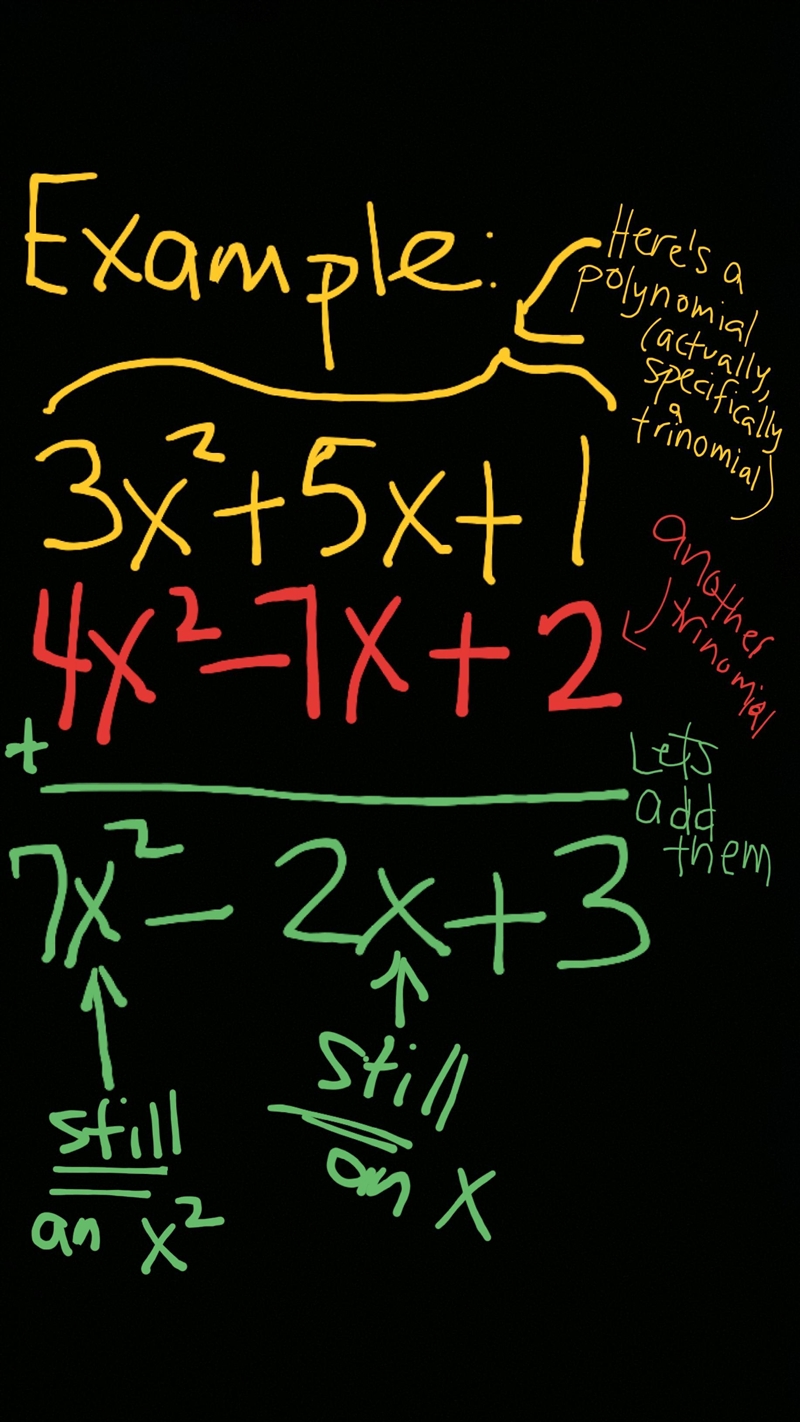 Example:
Here's a
polynomial
(actually,
specifically
a
trinomial)
3x²+5x+1
another
trinomial
4x²-7x+2
+
Lets
add
them
7x²-2x+3
still
an x²
still
an x